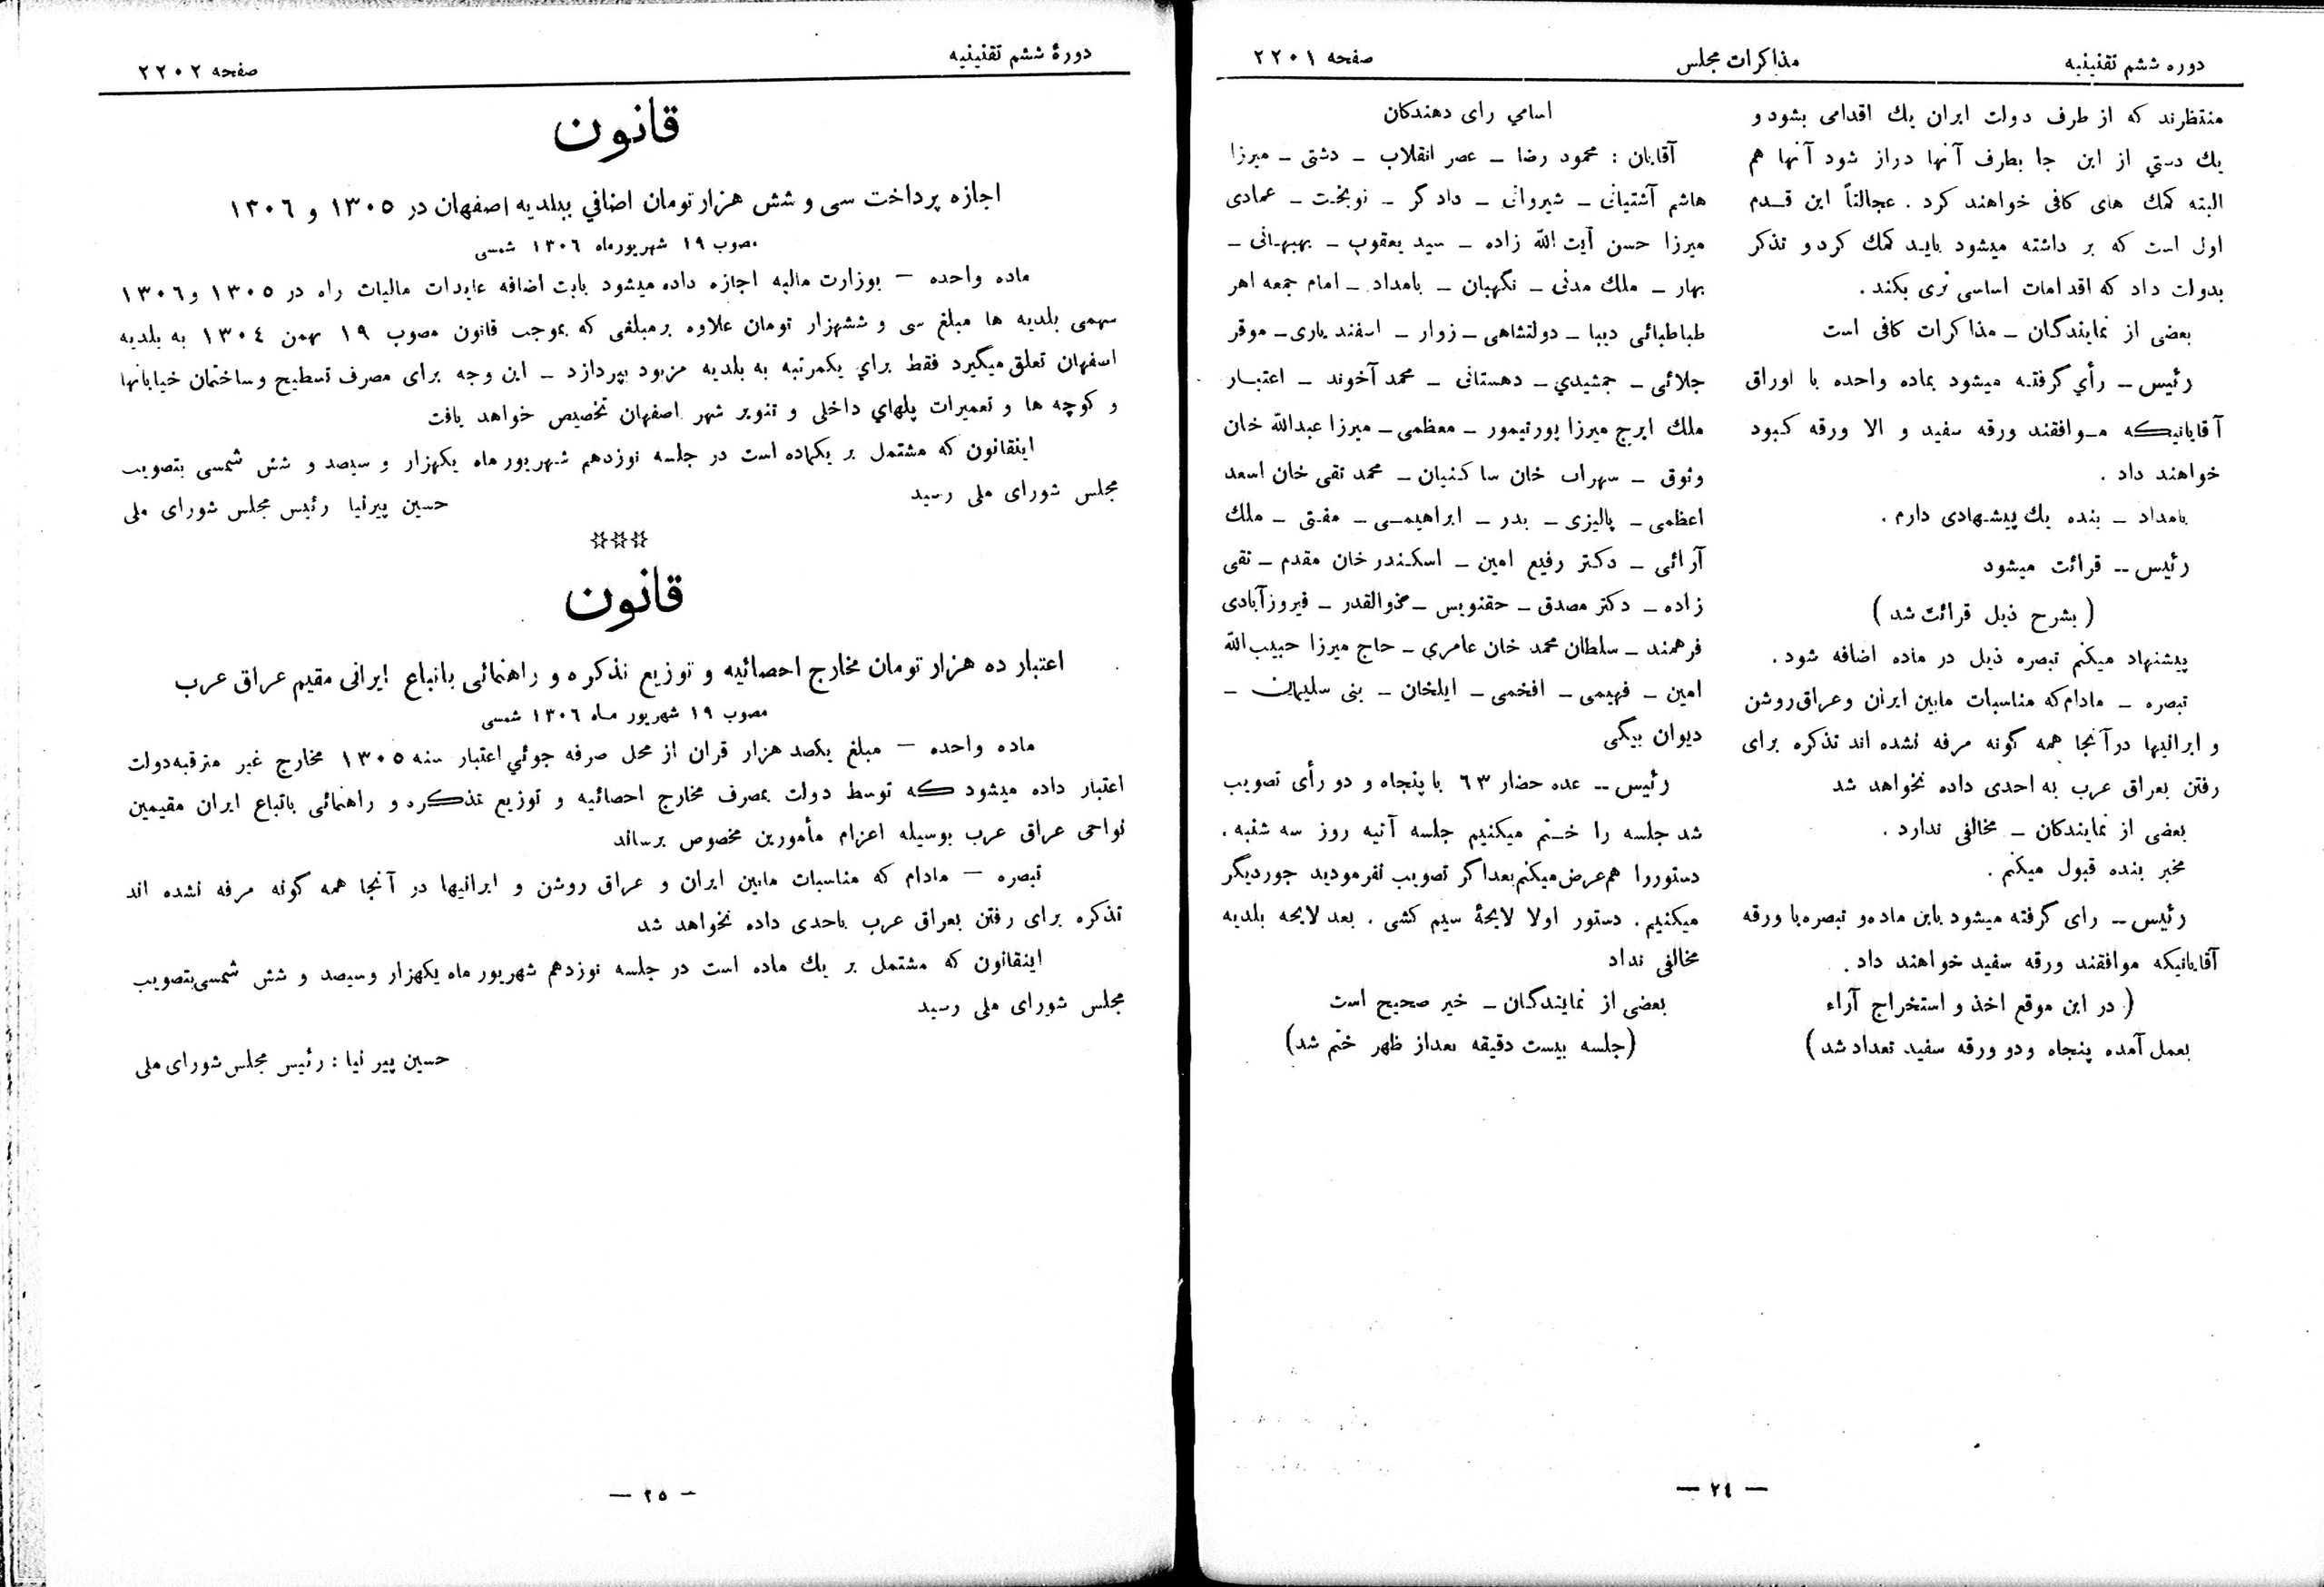 دوره ششم تقنینیه
مذاکرات مجلس
صفحه ۲۲۰۱
منتظرند که از طرف دولت ایران یك اقدامی بشود و
یك دستي از این جا بطرف آنها دراز شود آنها هم
البته کمك های کافی خواهند کرد . عجالتاً این قـدم
اول است که بر داشته میشود باید کمك کرد و تذکر
بدولت داد که اقدامات اساسی تری بکند .
بعضی از نمایندگان ــ مذاکرات کافی است
رئیس ــ رأي گرفته میشود بماده واحده با اوراق
آقایانیکه مـوافقند ورقه سفید و الا ورقه کبود
خواهند داد .
بامداد ــ بنده یك پیشنهادی دارم .
رئیس ــ قرائت میشود
( بشرح ذیل قرائت شد )
پیشنهاد میکنم تبصره ذیل در ماده اضافه شود .
تبصره ــ مادام که مناسبات مابین ایران و عراق روشن
و ایرانیها در آنجا همه گونه مرفه نشده اند تذکره برای
رفتن بعراق عرب به احدی داده نخواهد شد
بعضی از نمایندکان ــ مخالفی ندارد .
مخبر بنده قبول میکنم .
رئیس ــ رای گرفته میشود باین ماده و تبصره با ورقه
آقایانیکه موافقند ورقه سفید خواهند داد .
( در این موقع اخذ و استخراج آراء
بعمل آمده پنجاه ودو ورقه سفید تعداد شد )
اسامي رای دهندکان
آقایان : محمود رضا ــ عصر انقلاب ــ دشتی ــ میرزا
هاشم آشتیانی ــ شیروانی ــ دادگر ــ نوبخت ــ عمادی
میرزا حسن آیت الله زاده ــ سید یعقوب ــ بهبهانی ــ
بهار ــ ملك مدنی ــ نگهبان ــ بامداد ــ امام جمعه اهر
طباطبائی دیبا ــ دولتشاهی ــ زوار ــ اسفندیاری ــ موقر
جلائی ــ جمشیدي ــ دهستانی ــ محمد آخوند ــ اعتبـار
ملك ایرج میرزا پورتیمور ــ معظمی ــ میرزا عبدالله خان
وثوق ــ سهراب خان ساکنیان ــ محمد تقی خان اسعد
اعظمی ــ پالیزی ــ بدر ــ ابراهیمـی ــ مفتی ــ ملك
آرائی ــ دکتر رفیع امین ــ اسکندر خان مقدم ــ تقی
زاده ــ دکتر مصدق ــ حقنویس ــ ذوالقدر ــ فیروزآبادی
فرهمند ــ سلطان محمد خان عامري ــ حاج میرزا حبیب الله
امین ــ فهیمی ــ افخمی ــ ایلخان ــ بنی سلیمان ــ
دیوان بیگی
رئیس ــ عده حضار ٦٣ با پنجاه و دو رأی تصویب
شد جلسه را خـتم میکنیم جلسه آتیه روز سه شنبه .
دستور را هم عرض میکنم بعد اگر تصویب نفرمودید جور دیگر
میکنیم . دستور اولا لایحۀ سیم کشی . بعد لایحه بلدیه
مخالفی نداد
بعضی از نمایندگان ــ خیر صحیح است
(جلسه بیست دقیقه بعداز ظهر ختم شد)
— ٢٤ —
دورۀ ششم تقنینیه
صفحه ۲۲۰۲
قانون
اجازه پرداخت سی و شش هزار تومان اضافي ببلدیه اصفهان در ۱۳۰٥ و ۱۳۰٦
مصوب ١٩ شهریورماه ١٣٠٦ شمسی
ماده واحده — بوزارت مالیه اجازه داده میشود بابت اضافه عایدات مالیات راه در ۱۳۰٥ و ۱۳۰٦
سهمی بلدیه ها مبلغ سی و ششهزار تومان علاوه بر مبلغی که بموجب قانون مصوب ١٩ بهمن ١٣٠٤ به بلدیه
اصفهان تعلق میگیرد فقط براي یکمرتبه به بلدیه مزبود بپردازد ــ این وجه برای مصرف تسطیح وساختمان خیابانها
و کوچه ها و تعمیرات پلهاي داخلی و تنویر شهر اصفهان تخصیص خواهد یافت
اینقانون که مشتمل بر یکماده است در جلسه نوزدهم شهریور ماه یکهزار و سیصد و شش شمسی بتصویب
مجلس شورای ملی رسید
حسین پیرنیا رئیس مجلس شورای ملی
***
قانون
اعتبار ده هزار تومان مخارج احصائیه و توزیع تذکره و راهنمائی باتباع ایرانی مقیم عراق عرب
مصوب ١٩ شهریور ماه ١٣٠٦ شمسی
ماده واحده — مبلغ یکصد هزار قران از محل صرفه جوئي اعتبار سنه ١٣٠٥ مخارج غیر مترقبه دولت
اعتبار داده میشود که توسط دولت بمصرف مخارج احصائیه و توزیع تذکره و راهنمائی باتباع ایران مقیمین
نواحی عراق عرب بوسیله اعزام مأمورین مخصوص برساند
تبصره — مادام که مناسبات مابین ایران و عراق روشن و ایرانیها در آنجا همه گونه مرفه نشده اند
تذکره برای رفتن بعراق عرب باحدی داده نخواهد شد
اینقانون که مشتمل بر یك ماده است در جلسه نوزدهم شهریور ماه یکهزار وسیصد و شش شمسی بتصویب
مجلس شورای ملی رسید
حسین پیر نیا : رئیس مجلس شورای ملی
— ٢٥ —